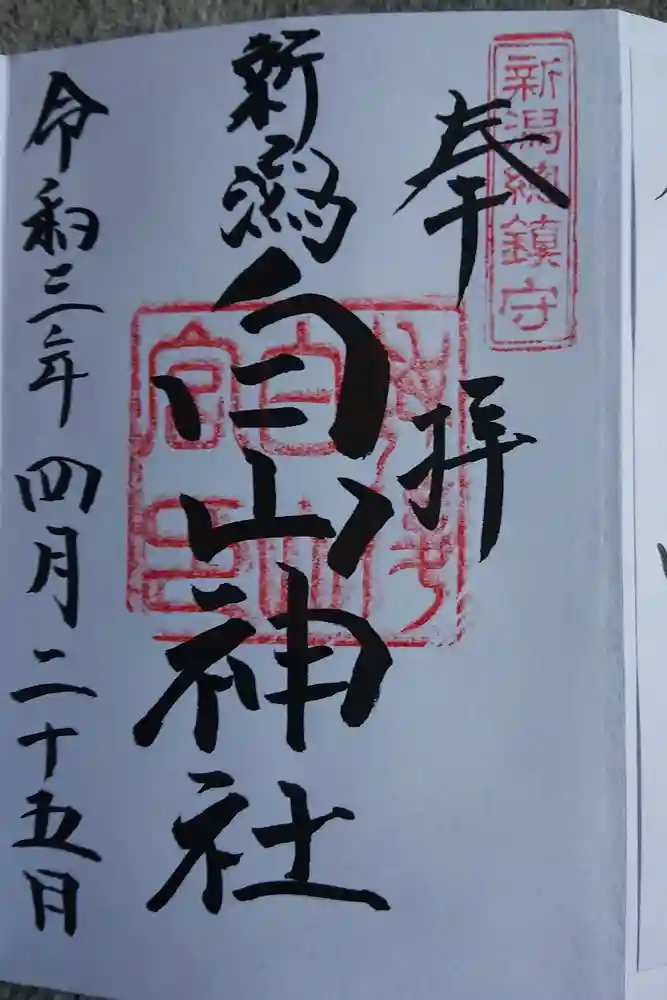 新潟總鎮守
奉拝
新潟白山神社
令和三年四月二十五日